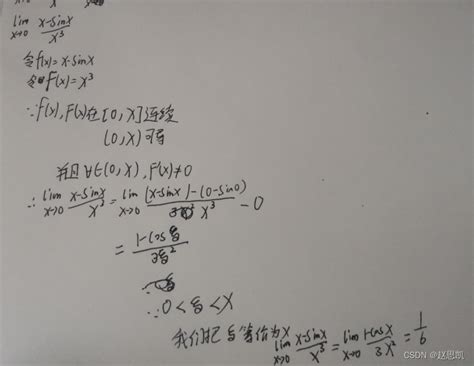 lim x→0 (x-sinx)/x³
令f(x)=x-sinx
令F(x)=x³
∵f(x),F(x)在[0,X]连续
(0,X)可导
并且∀∈(0,X),F(x)≠0
∴lim x→0 (x-sinx)/x³ = lim x→0 ((x-sinx)-(0-sin0))/(x³-0)
= (1-cosξ)/(3ξ²)
∵0<ξ<X
我们把ξ等价为X
lim x→0 (x-sinx)/x³ = lim x→0 (1-cosx)/(3x²) = 1/6
CSDN @赵思凯